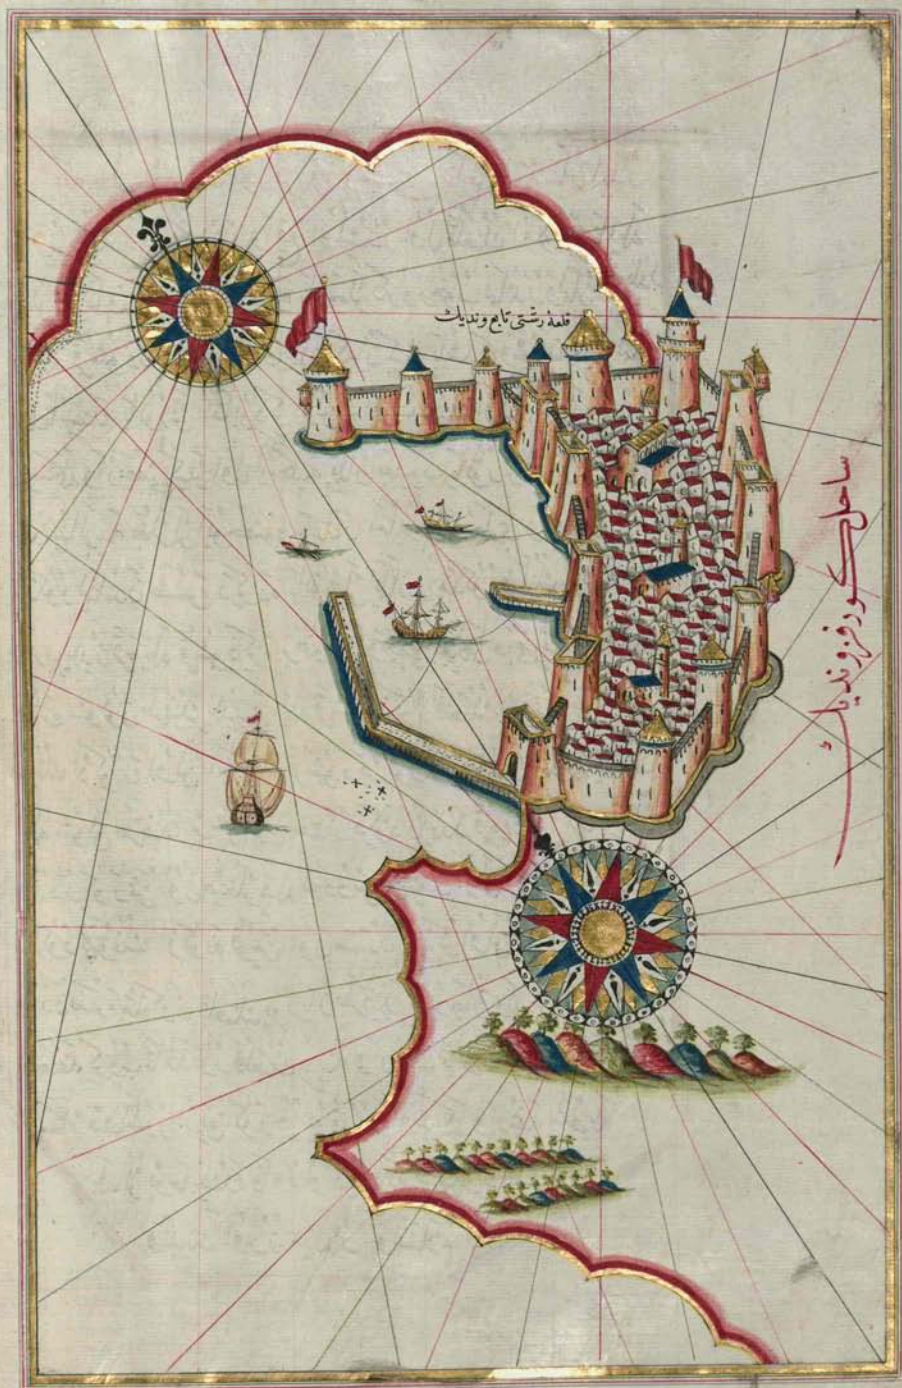 قلعهٔ رشتی تابع وندیك
ساحل كورفز وندیك